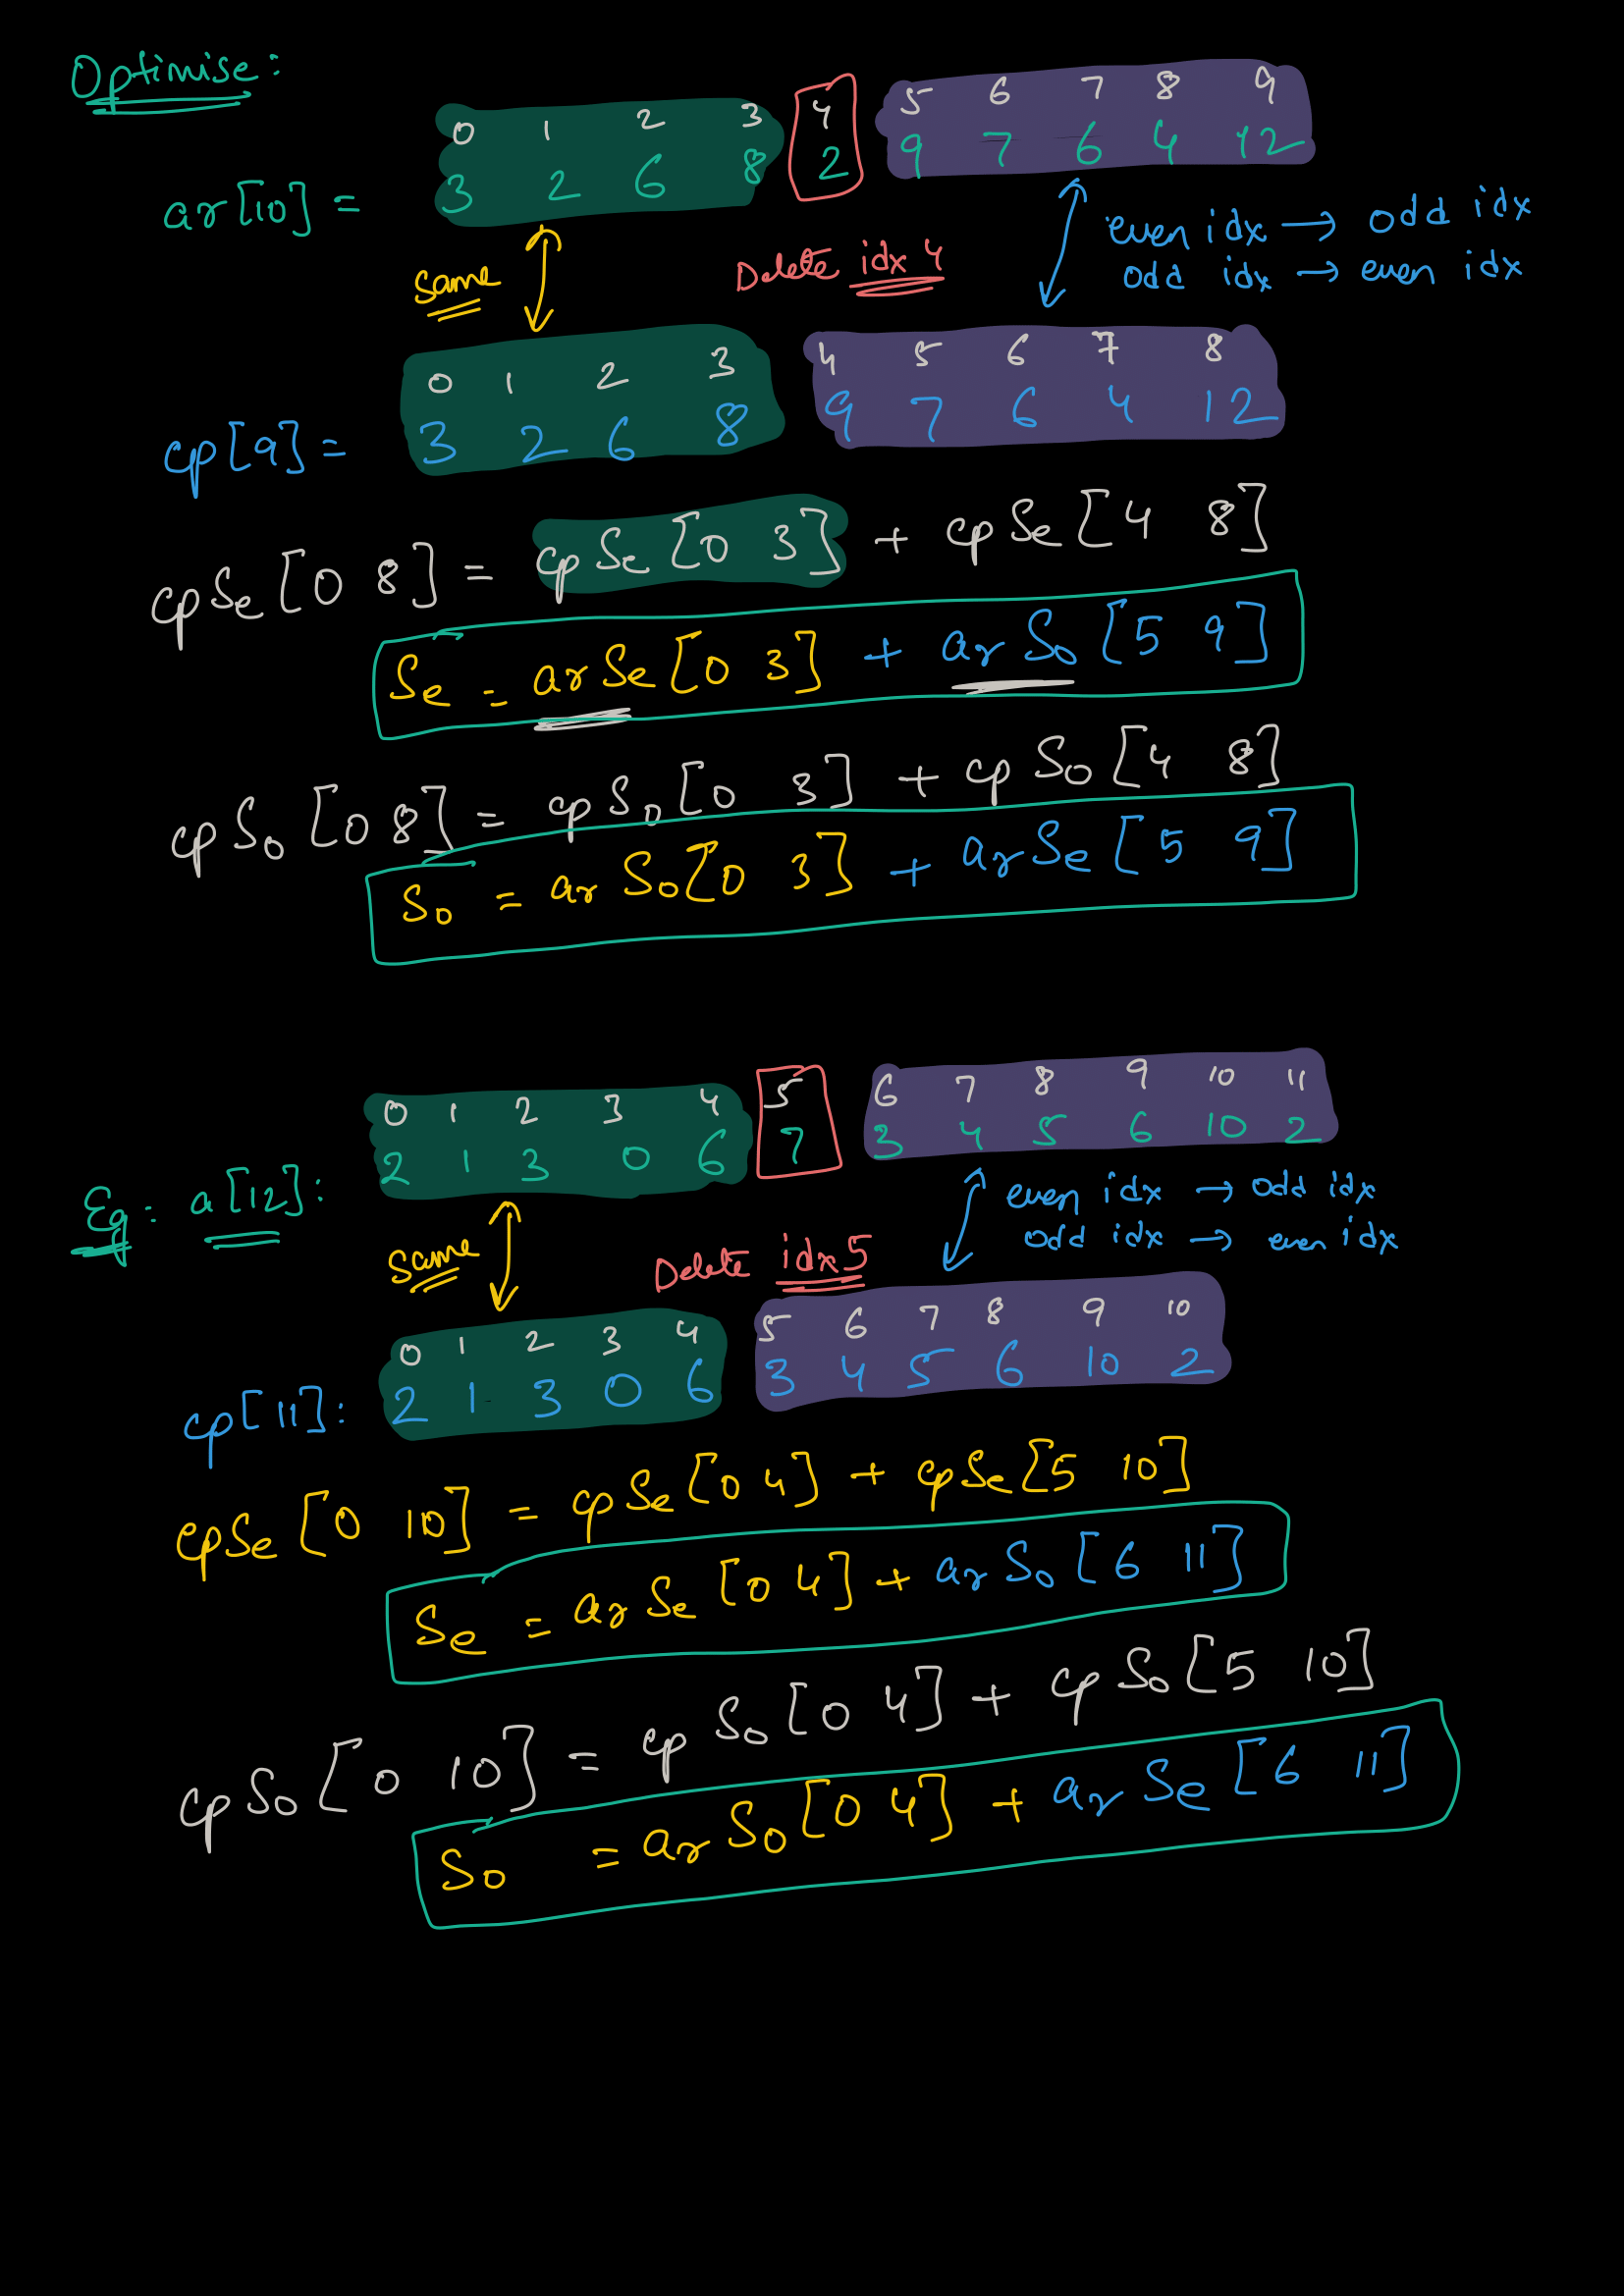 Optimise:
0 1 2 3 4 5 6 7 8 9
ar[10] = 3 2 6 8 2 9 7 6 4 12
same
Delete idx 4
even idx → odd idx
odd idx → even idx
0 1 2 3 4 5 6 7 8
cp[9] = 3 2 6 8 9 7 6 4 12
cpSe[0 8] = cpSe[0 3] + cpSe[4 8]
Se = arSe[0 3] + arSo[5 9]
cpSo[0 8] = cpSo[0 3] + cpSo[4 8]
So = arSo[0 3] + arSe[5 9]
0 1 2 3 4 5 6 7 8 9 10 11
Eg: a[12]: 2 1 3 0 6 7 3 4 5 6 10 2
same
Delete idx 5
even idx → odd idx
odd idx → even idx
0 1 2 3 4 5 6 7 8 9 10
cp[11]: 2 1 3 0 6 3 4 5 6 10 2
cpSe[0 10] = cpSe[0 4] + cpSe[5 10]
Se = arSe[0 4] + arSo[6 11]
cpSo[0 10] = cpSo[0 4] + cpSo[5 10]
So = arSo[0 4] + arSe[6 11]